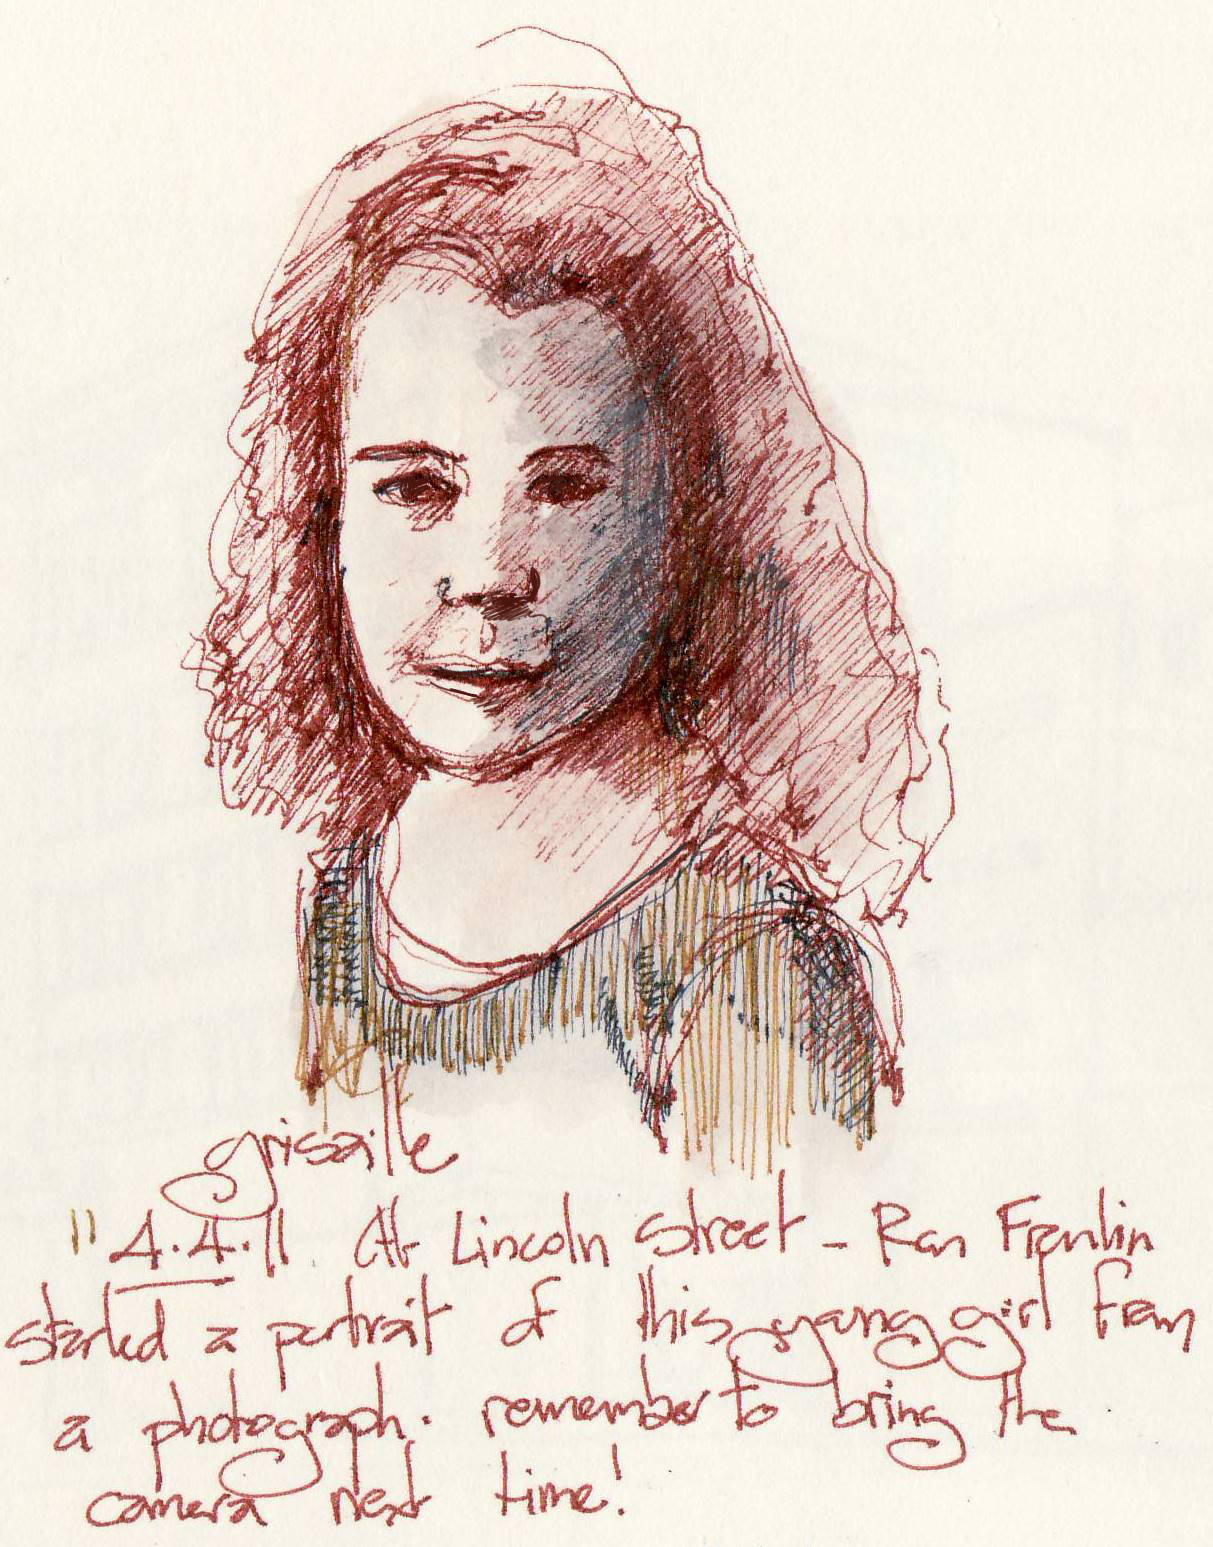 grisaille
" 4.4.11 At Lincoln Street - Ron
started a portrait of this young girl from
a photograph. remember to bring the
camera next time!